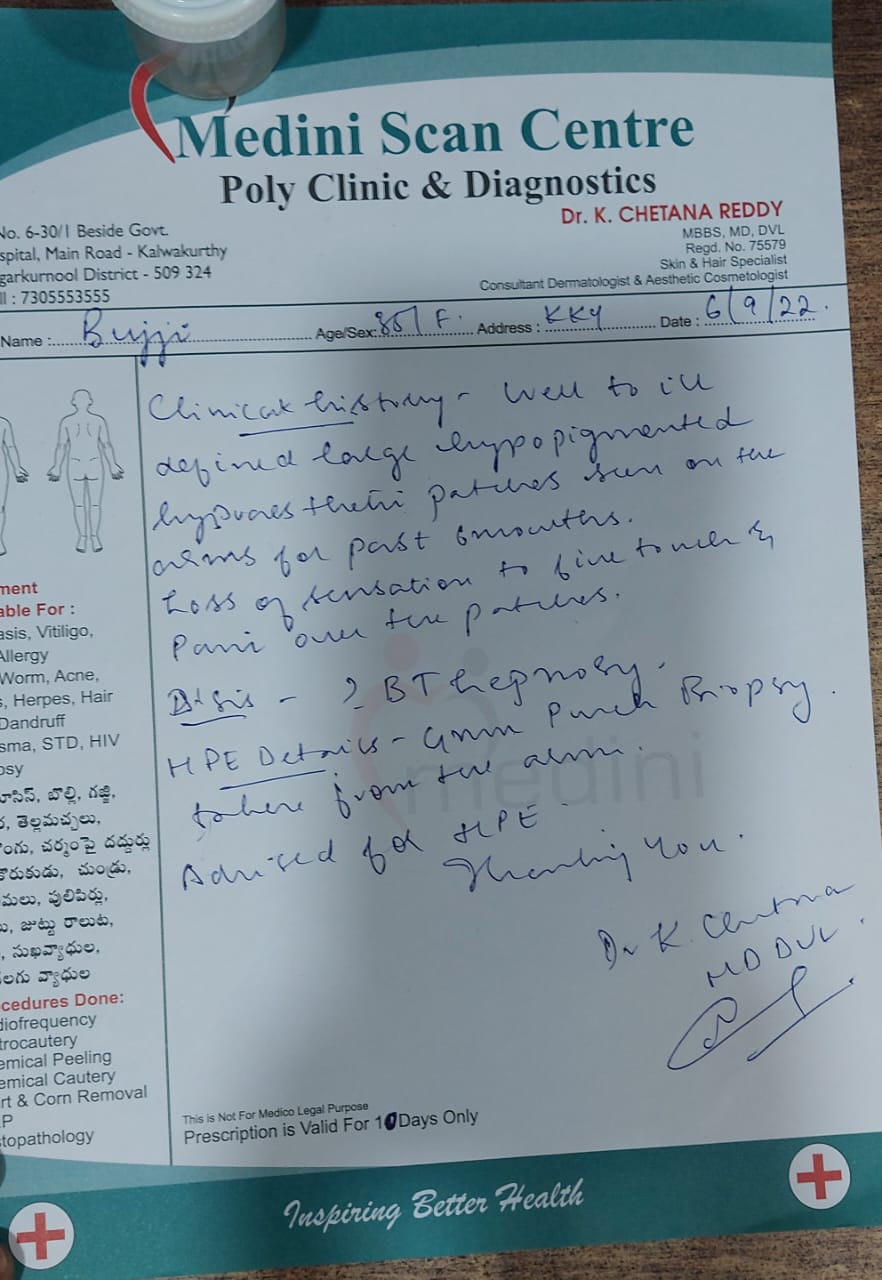 Medini Scan Centre
Poly Clinic & Diagnostics
Dr. K. CHETANA REDDY
MBBS, MD, DVL
Regd. No. 75579
Skin & Hair Specialist
Consultant Dermatologist & Aesthetic Cosmetologist
No. 6-30/1 Beside Govt.
spital, Main Road - Kalwakurthy
garkurnool District - 509 324
ll : 7305553555
Name : Bujji Age/Sex: F. Address : KKY Date : 6/9/22.
Clinical history - Well to ill
defined large hypopigmented
patches seen on the
arms for past 6 months.
Loss of sensation to fine touch &
Pain over the patches.
- ? BT
HPE Details - 4mm Punch Biopsy.
taken from the arm.
Advised for HPE.
Thanking You.
Dr K. Chetna
MD DVL.
ment
able For :
asis, Vitiligo,
Allergy
Worm, Acne,
s, Herpes, Hair
Dandruff
sma, STD, HIV
osy
ాసిస్, బొల్లి, గజ్జి,
ర, తెల్లమచ్చలు,
ంగు, చర్మంపై దద్దుర్లు
కొరుకుడు, చుండ్రు,
మలు, పులిపిర్లు,
ు, జుట్టు రాలుట,
, సుఖవ్యాధుల,
లగు వ్యాధుల
cedures Done:
diofrequency
trocautery
emical Peeling
emical Cautery
rt & Corn Removal
P
topathology
medini
This is Not For Medico Legal Purpose
Prescription is Valid For 10 Days Only
Inspiring Better Health